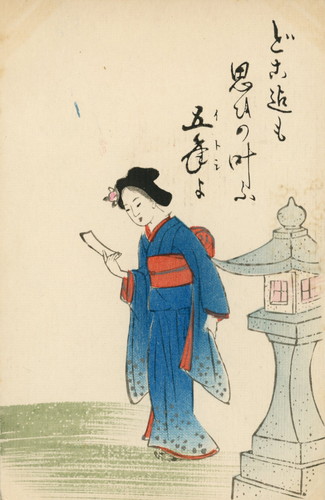 どこ迄も
思ひの叶ふ
五年よ
イトシ